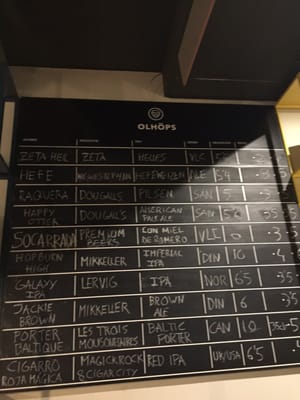 OLHÖPS
ZETA HELL ZETA HELLES VLC 5
HEFE HEFEWEIZEN ALE 5'4
RAQUERA DOUGALL'S PILSEN SAN 5 -3'5
HAPPY OTTER DOUGALL'S AMERICAN PALE ALE SAN 5'6 -3'5
SOCARRADA PREMIUM BEERS CON MIEL DE ROMERO VLC 6 -3'5
HOPBURN HIGH MIKKELLER IMPERIAL IPA DIN 10 -4
GALAXY IPA LERVIG IPA NOR 6'5 -3'5
JACKIE BROWN MIKKELLER BROWN ALE DIN 6 -3'5
PORTER BALTIQUE LES TROIS MOUSQUETAIRES BALTIC PORTER CAN 10
CIGARRO ROJA MAGICA MAGICKROCK & CIGAR CITY RED IPA UK/USA 6'5 -4